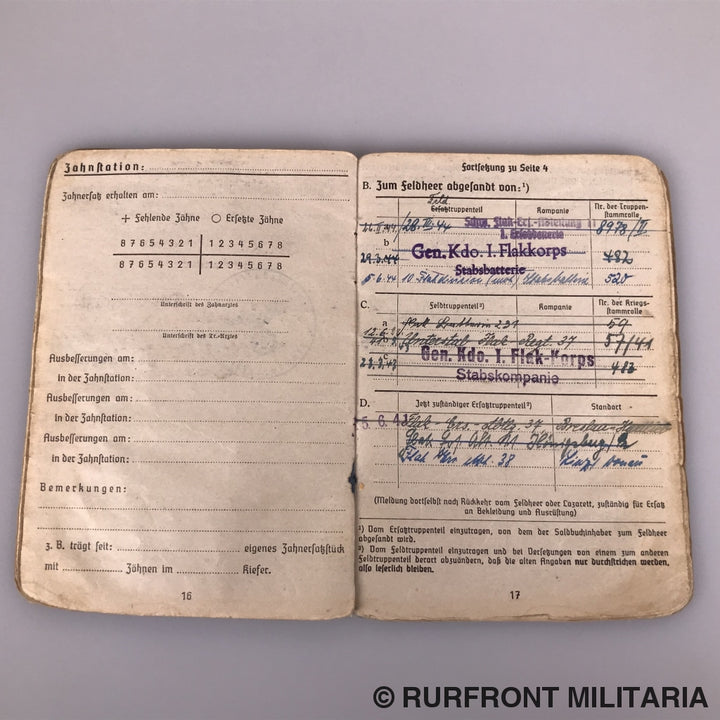 Zahnstation:
Zahnersatz erhalten am:
+ Fehlende Zähne ○ Ersetzte Zähne
8 7 6 5 4 3 2 1 | 1 2 3 4 5 6 7 8
8 7 6 5 4 3 2 1 | 1 2 3 4 5 6 7 8
Unterschrift des Zahnarztes
Unterschrift des Tr.-Arztes
Ausbesserungen am:
in der Zahnstation:
Ausbesserungen am:
in der Zahnstation:
Ausbesserungen am:
in der Zahnstation:
Bemerkungen:
z. B. trägt seit: eigenes Zahnersatzstück
mit Zähnen im Kiefer.
16
Fortsetzung zu Seite 4
B. Zum Feldheer abgesandt von:¹)
Feld
Ersatztruppenteil Kompanie Nr. der Truppen-
stammrolle
8972/II
b
Gen. Kdo. I. Flakkorps 482
Stabsbatterie
5.6.44 10 Stabsbatterie 520
C. Feldtruppenteil²) Kompanie Nr. der Kriegs-
stammrolle
a 231 59
Flak Regt. 37 57/41
Gen. Kdo. I. Flak-Korps 482
Stabskompanie
D. Jetzt zuständiger Ersatztruppenteil²) Standort
5. 6. 41 37 Breslau
Königsberg
38
(Meldung dortselbst nach Rückkehr vom Feldheer oder Lazarett, zuständig für Ersatz
an Bekleidung und Ausrüstung)
¹) Vom Ersatztruppenteil einzutragen, von dem der Soldbuchinhaber zum Feldheer
abgesandt wird.
²) Vom Feldtruppenteil einzutragen und bei Versetzungen von einem zum anderen
Feldtruppenteil derart abzuändern, daß die alten Angaben nur durchstrichen werden,
also leserlich bleiben.
17
© RURFRONT MILITARIA